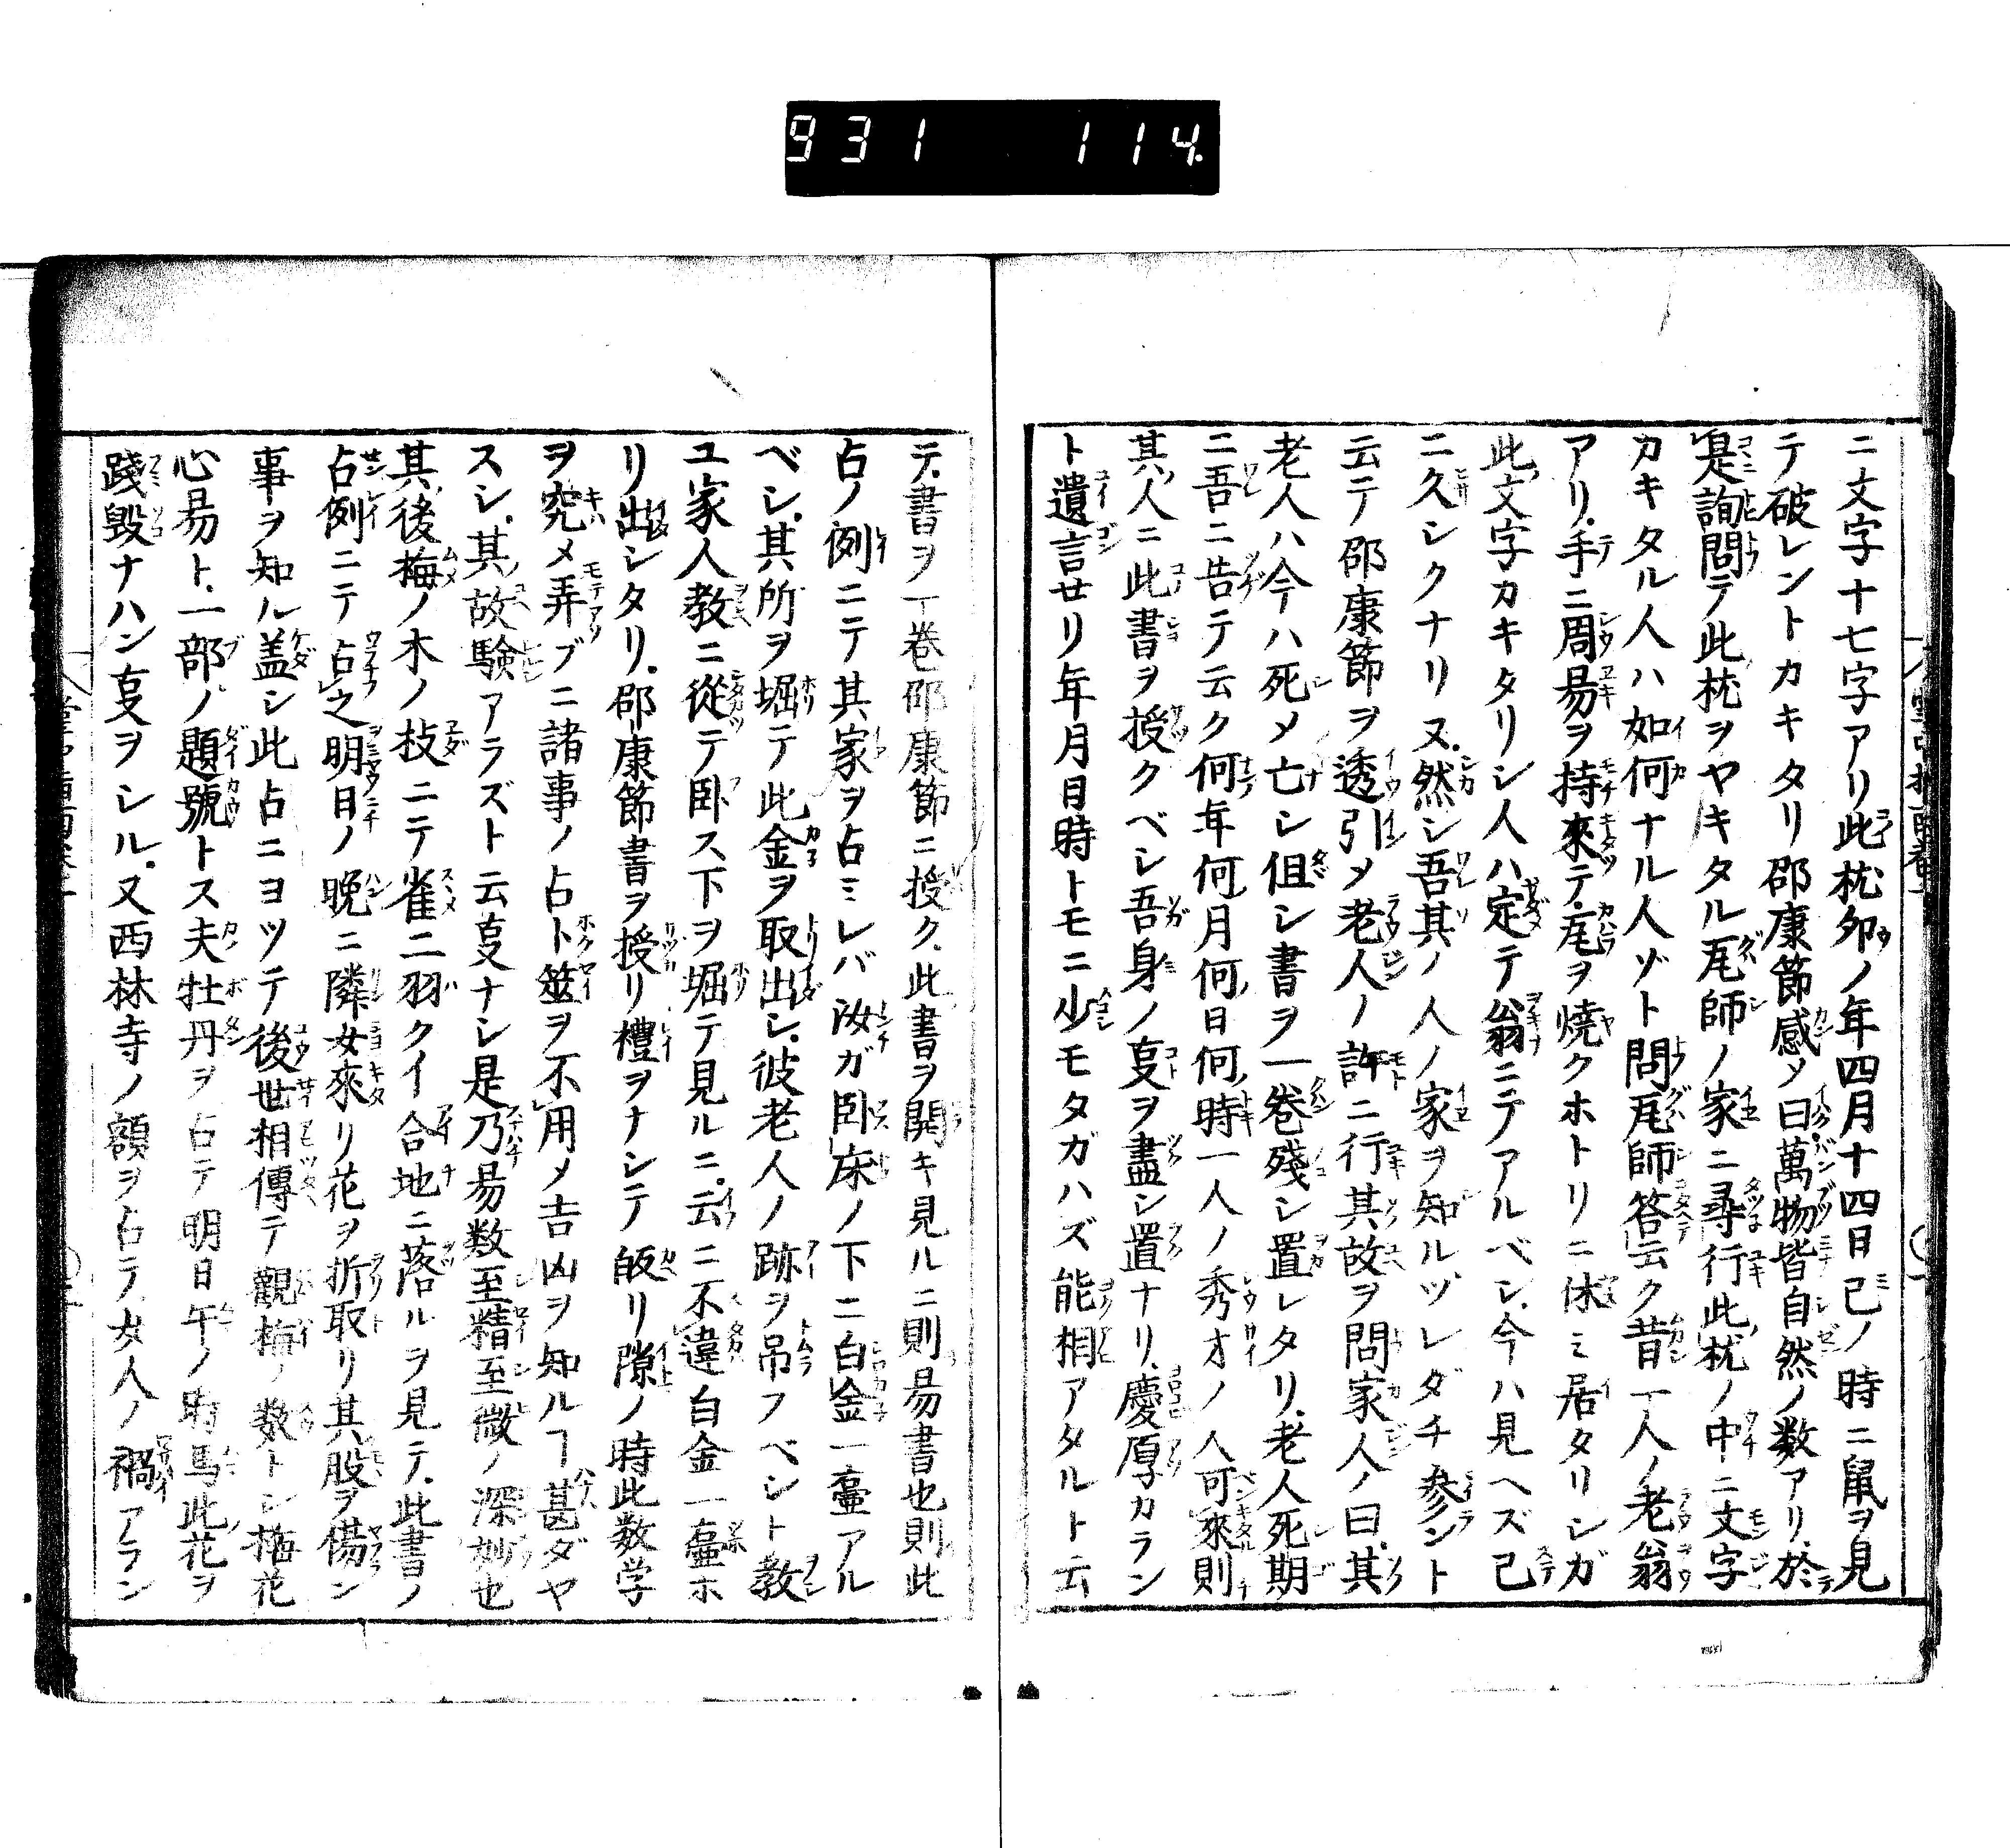 931 114.
ニ文字十七字アリ此枕夘ノ年四月十四日己ノ時ニ鼠ヲ見
テ破レントカキタリ邵康節感メ曰萬物皆自然ノ数アリ於
是詢問テ此枕ヲヤキタル瓦師ノ家ニ尋行此枕ノ中ニ文字
カキタル人ハ如何ナル人ゾト問瓦師答云ク昔一人ノ老翁
アリ手ニ周易ヲ持來テ瓦ヲ燒クホトリニ休ミ居タリシガ
此文字カキタリシ人ハ定テ翁ニテアルベシ今ハ見ヘズ已
ニ久シクナリヌ然シ吾其ノ人ノ家ヲ知ルツレダチ参ント
云テ邵康節ヲ透引メ老人ノ許ニ行其故ヲ問家人ノ曰其
老人ハ今ハ死メ亡シ但シ書ヲ一巻殘シ置レタリ老人死期
ニ吾ニ告テ云ク何年何月何日何時一人ノ秀才ノ人可來則
其人ニ此書ヲ授クベシ吾身ノ㕝ヲ盡シ置ナリ慶厚カラン
ト遺言せリ年月日時トモニ少モタガハズ能相アタルト云
テ書ヲ一巻邵康節ニ授ク此書ヲ開キ見ルニ則易書也則此
占ノ例ニテ其家ヲ占ミレバ汝ガ卧床ノ下ニ白金一壷アル
ベシ其所ヲ堀テ此金ヲ取出シ彼老人ノ跡ヲ吊フベシト教
ユ家人教ニ從テ卧ス下ヲ堀テ見ルニ云ニ不違白金一壷ホ
リ出シタリ邵康節書ヲ授リ禮ヲナシテ皈リ隙ノ時此数学
ヲ究メ弄ブニ諸事ノ占ト筮ヲ不用メ吉凶ヲ知ルヿ甚ダヤ
スシ其故驗アラズト云㕝ナシ是乃易数至精至微ノ深妙也
其後梅ノ木ノ枝ニテ雀二羽クイ合地ニ落ルヲ見テ此書ノ
占例ニテ占之明日ノ晩ニ隣女來リ花ヲ折取リ其股ヲ傷ン
事ヲ知ル盖シ此占ニヨツテ後世相傳テ觀梅ノ数トシ梅花
心易ト一部ノ題號トス夫牡丹ヲ占テ明日午ノ時馬此花ヲ
踐毀ナハン㕝ヲシル又西林寺ノ額ヲ占テ女人ノ禍アラン